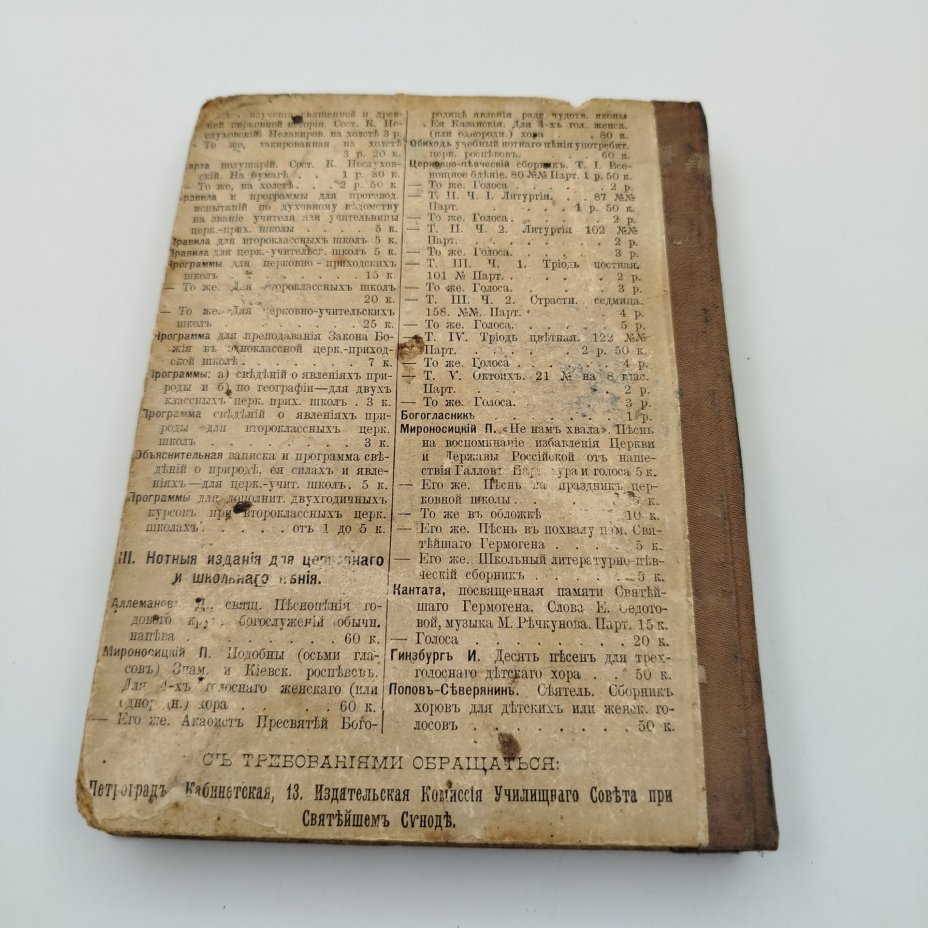 изученія священной и древ-
ней церковной исторіи Сост. К. Не-
слуховскій Нелакиров. на холстѣ 3 р.
То же, лакированная на холстѣ
3 р. 20 к.
Карта полушарій. Сост. К. Неслухов-
скій. На бумагѣ . . . 1 р. 30 к.
— То же, на холстѣ. . . 2 р. 50 к.
Правила и программы для производ.
испытаній по духовному вѣдомству
на званіе учителя или учительницы
церк.-прих. школы . . . 5 к.
Правила для второклассныхъ школъ 5 к.
Правила для церк.-учительск. школъ 5 к.
Программы для церковно-приходскихъ
школъ . . . 15 к.
— То же. Для второклассныхъ школъ
20 к.
— То же. Для церковно-учительскихъ
школъ . . . 25 к.
Программа для преподаванія Закона Бо-
жія въ одноклассной церк.-приход-
ской школѣ . . . 7 к.
Программы: а) свѣдѣній о явленіяхъ при-
роды и б) по географіи—для двухъ
классныхъ церк. прих. школъ . 3 к.
Программа свѣдѣній о явленіяхъ при-
роды для второклассныхъ церк.
школъ . . . 3 к.
Объяснительная записка и программа свѣ-
дѣній о природѣ, ея силахъ и явле-
ніяхъ—для церк.-учит. школъ. 5 к.
Программы для дополнит. двухгодичныхъ
курсовъ при второклассныхъ церк.
школахъ . . . отъ 1 до 5 к.
III. Нотныя изданія для церковнаго
и школьнаго пѣнія.
Аллемановъ Д., свящ. Пѣснопѣнія го-
дового круга богослуженій обычн.
напѣва . . . 60 к.
Мироносицкій П. Подобны (осьми гла-
совъ) Знам. и Кіевск. роспѣвовъ.
Для 4-хъ голоснаго женскаго (или
однородн.) хора . . . 60 к.
— Его же. Акаѳистъ Пресвятѣй Бого-
родицѣ явленія ради чудотв. иконы
Ея Казанскія. Для 4-хъ гол. женск.
(или однородн.) хора . . . 80 к.
Обиходъ учебный нотнаго пѣнія употребит.
церк. роспѣвовъ. . . . 60 к.
Церковно-пѣвческій сборникъ. Т. I. Все-
нощное бдѣніе. 80 №№ Парт. 1 р. 50 к.
— То же. Голоса . . . 2 р.
— Т. II. Ч. I. Литургія. . . 87 №№
Парт. . . . 1 р. 50 к.
— То же. Голоса . . . 2 р.
— Т. II. Ч. 2. Литургія 102 №№
Парт. . . . 2 р.
— То же. Голоса. . . . 3 р.
— Т. III. Ч. 1. Тріодь постная.
101 № Парт. . . . 2 р.
— То же. Голоса. . . . 3 р.
— Т. III. Ч. 2. Страстн. седмица.
158. №№. Парт. . . . 4 р.
— То же. Голоса. . . . 5 р.
— Т. IV. Тріодь цвѣтная. 122 №№
Парт. . . . 2 р. 50 к.
— То же. Голоса . . . 4 р.
— Т. V. Октоихъ. 21 № на 8 глас.
Парт. . . . 2 р.
— То же. Голоса. . . . 3 р.
Богогласникъ . . . 1 р.
Мироносицкій П. «Не намъ хвала». Пѣснь
на воспоминаніе избавленія Церкви
и Державы Россійской отъ наше-
ствія Галловъ. Партитура и голоса 5 к.
— Его же. Пѣснь на праздникъ цер-
ковной школы . . . к.
— То же въ обложкѣ . . . 10 к.
— Его же. Пѣснь въ похвалу пам. Свя-
тѣйшаго Гермогена . . . 5 к.
— Его же. Школьный литературно-пѣв-
ческій сборникъ . . . 5 к.
Кантата, посвященная памяти Святѣй-
шаго Гермогена. Слова Е. Ѳедото-
вой, музыка М. Рѣчкунова. Парт. 15 к.
— Голоса . . . 20 к.
Гинзбургъ И. Десять пѣсенъ для трех-
голоснаго дѣтскаго хора . . 50 к.
Поповъ-Сѣверянинъ. Сѣятель. Сборникъ
хоровъ для дѣтскихъ или женск. го-
лосовъ . . . 50 к.
СЪ ТРЕБОВАНІЯМИ ОБРАЩАТЬСЯ:
Петроградъ Кабинетская, 13. Издательская Комиссія Училищнаго Совѣта при
Святѣйшемъ Сѵнодѣ.